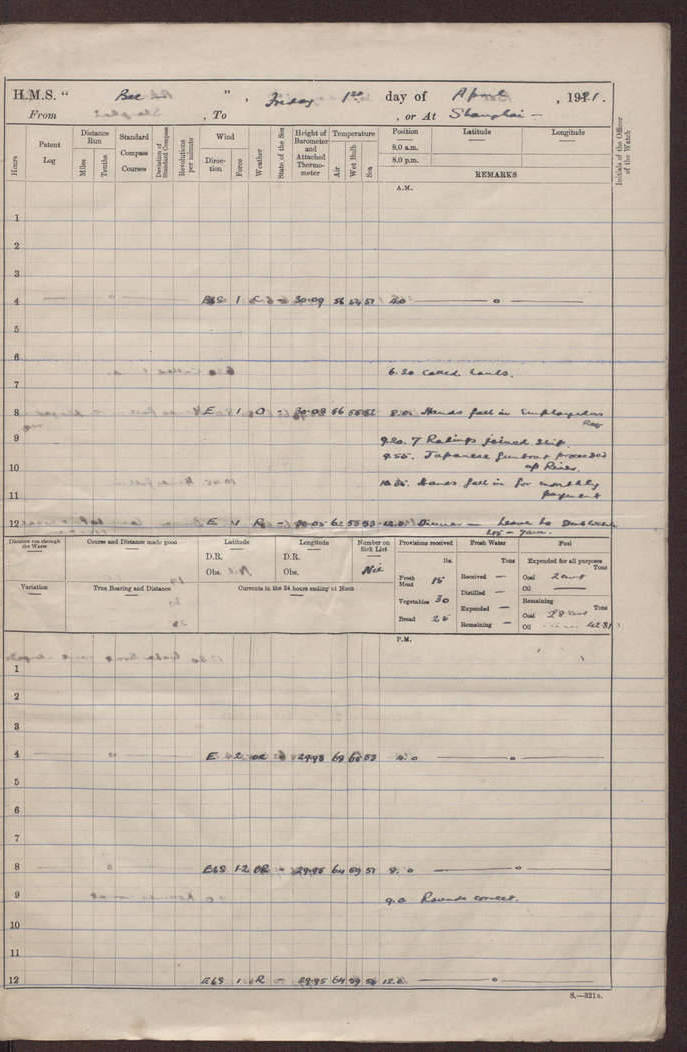 H.M.S. " Bee " , Friday 1st day of April , 1921.
From , To , or At Shanghai —
Hours
Patent Log
Distance Run
Miles
Tenths
Standard Compass Courses
Deviation of Standard Compass
Revolutions per minute
Wind
Direction
Force
Weather
State of the Sea
Height of Barometer and Attached Thermometer
Temperature
Air
Wet Bulb
Sea
Position
8.0 a.m.
8.0 p.m.
Latitude
Longitude
REMARKS
Initials of the Officer of the Watch
A.M.
1
2
3
4 — o — E6S 1 — 30.09 56 54 51 4.0 — o —
5
6
6.30 Called hands.
7
8 E 1 O - 30.08 56 55 52 8.0 Hands fall in Employed as
Req
9
9.20. 7 Ratings joined ship.
9.55. Japanese Gunboat proceeded
10
up River.
10.35. Hands fall in for monthly
11
payment
12 E 1 - 30.05 62 55 53 12.0 Dinner — Leave to
— 7am.
Distance run through the Water
Course and Distance made good
Latitude
D.R.
Obs. Nil
Longitude
D.R.
Obs.
Number on Sick List
Nil
Provisions received
lbs.
Fresh Meat 15
Vegetables 30
Bread 25
Fresh Water
Tons
Received —
Distilled —
Expended —
Remaining —
Fuel
Expended for all purposes
Tons
Coal 2 cwt
Oil —
Remaining
Tons
Coal
Oil 42.81
Variation
True Bearing and Distance
Currents in the 24 hours ending at Noon
P.M.
1
2
3
4 — o — E 2 OR 29.98 69 60 53 4.0 — o —
5
6
7
8 — o — E6S 1-2 OR - 29.95 64 59 51 8.0 — o —
9
9.0 Rounds correct.
10
11
12 E6S 1 R — 29.95 64 59 12.0 — o —
S.—321a.